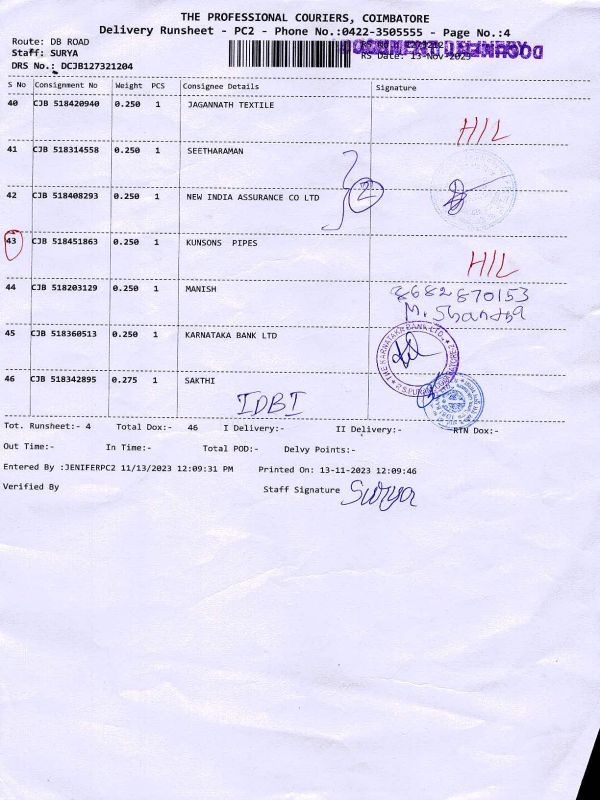 THE PROFESSIONAL COURIERS, COIMBATORE
Delivery Runsheet - PC2 - Phone No.:0422-3505555 - Page No.:4
Route: DB ROAD
Staff: SURYA
RS Date: 13-Nov-2023
DRS No.: DCJB127321204
S No Consignment No Weight PCS Consignee Details Signature
40 CJB 518420940 0.250 1 JAGANNATH TEXTILE
H/L
41 CJB 518314558 0.250 1 SEETHARAMAN
2
42 CJB 518408293 0.250 1 NEW INDIA ASSURANCE CO LTD
43 CJB 518451863 0.250 1 KUNSONS PIPES
H/L
44 CJB 518203129 0.250 1 MANISH
8682870153
45 CJB 518360513 0.250 1 KARNATAKA BANK LTD
THE KARNATAKA BANK LTD.,
46 CJB 518342895 0.275 1 SAKTHI
IDBI
Tot. Runsheet:- 4 Total Dox:- 46 I Delivery:- II Delivery:- RTN Dox:-
Out Time:- In Time:- Total POD:- Delvy Points:-
Entered By :JENIFERPC2 11/13/2023 12:09:31 PM Printed On: 13-11-2023 12:09:46
Verified By Staff Signature Surya